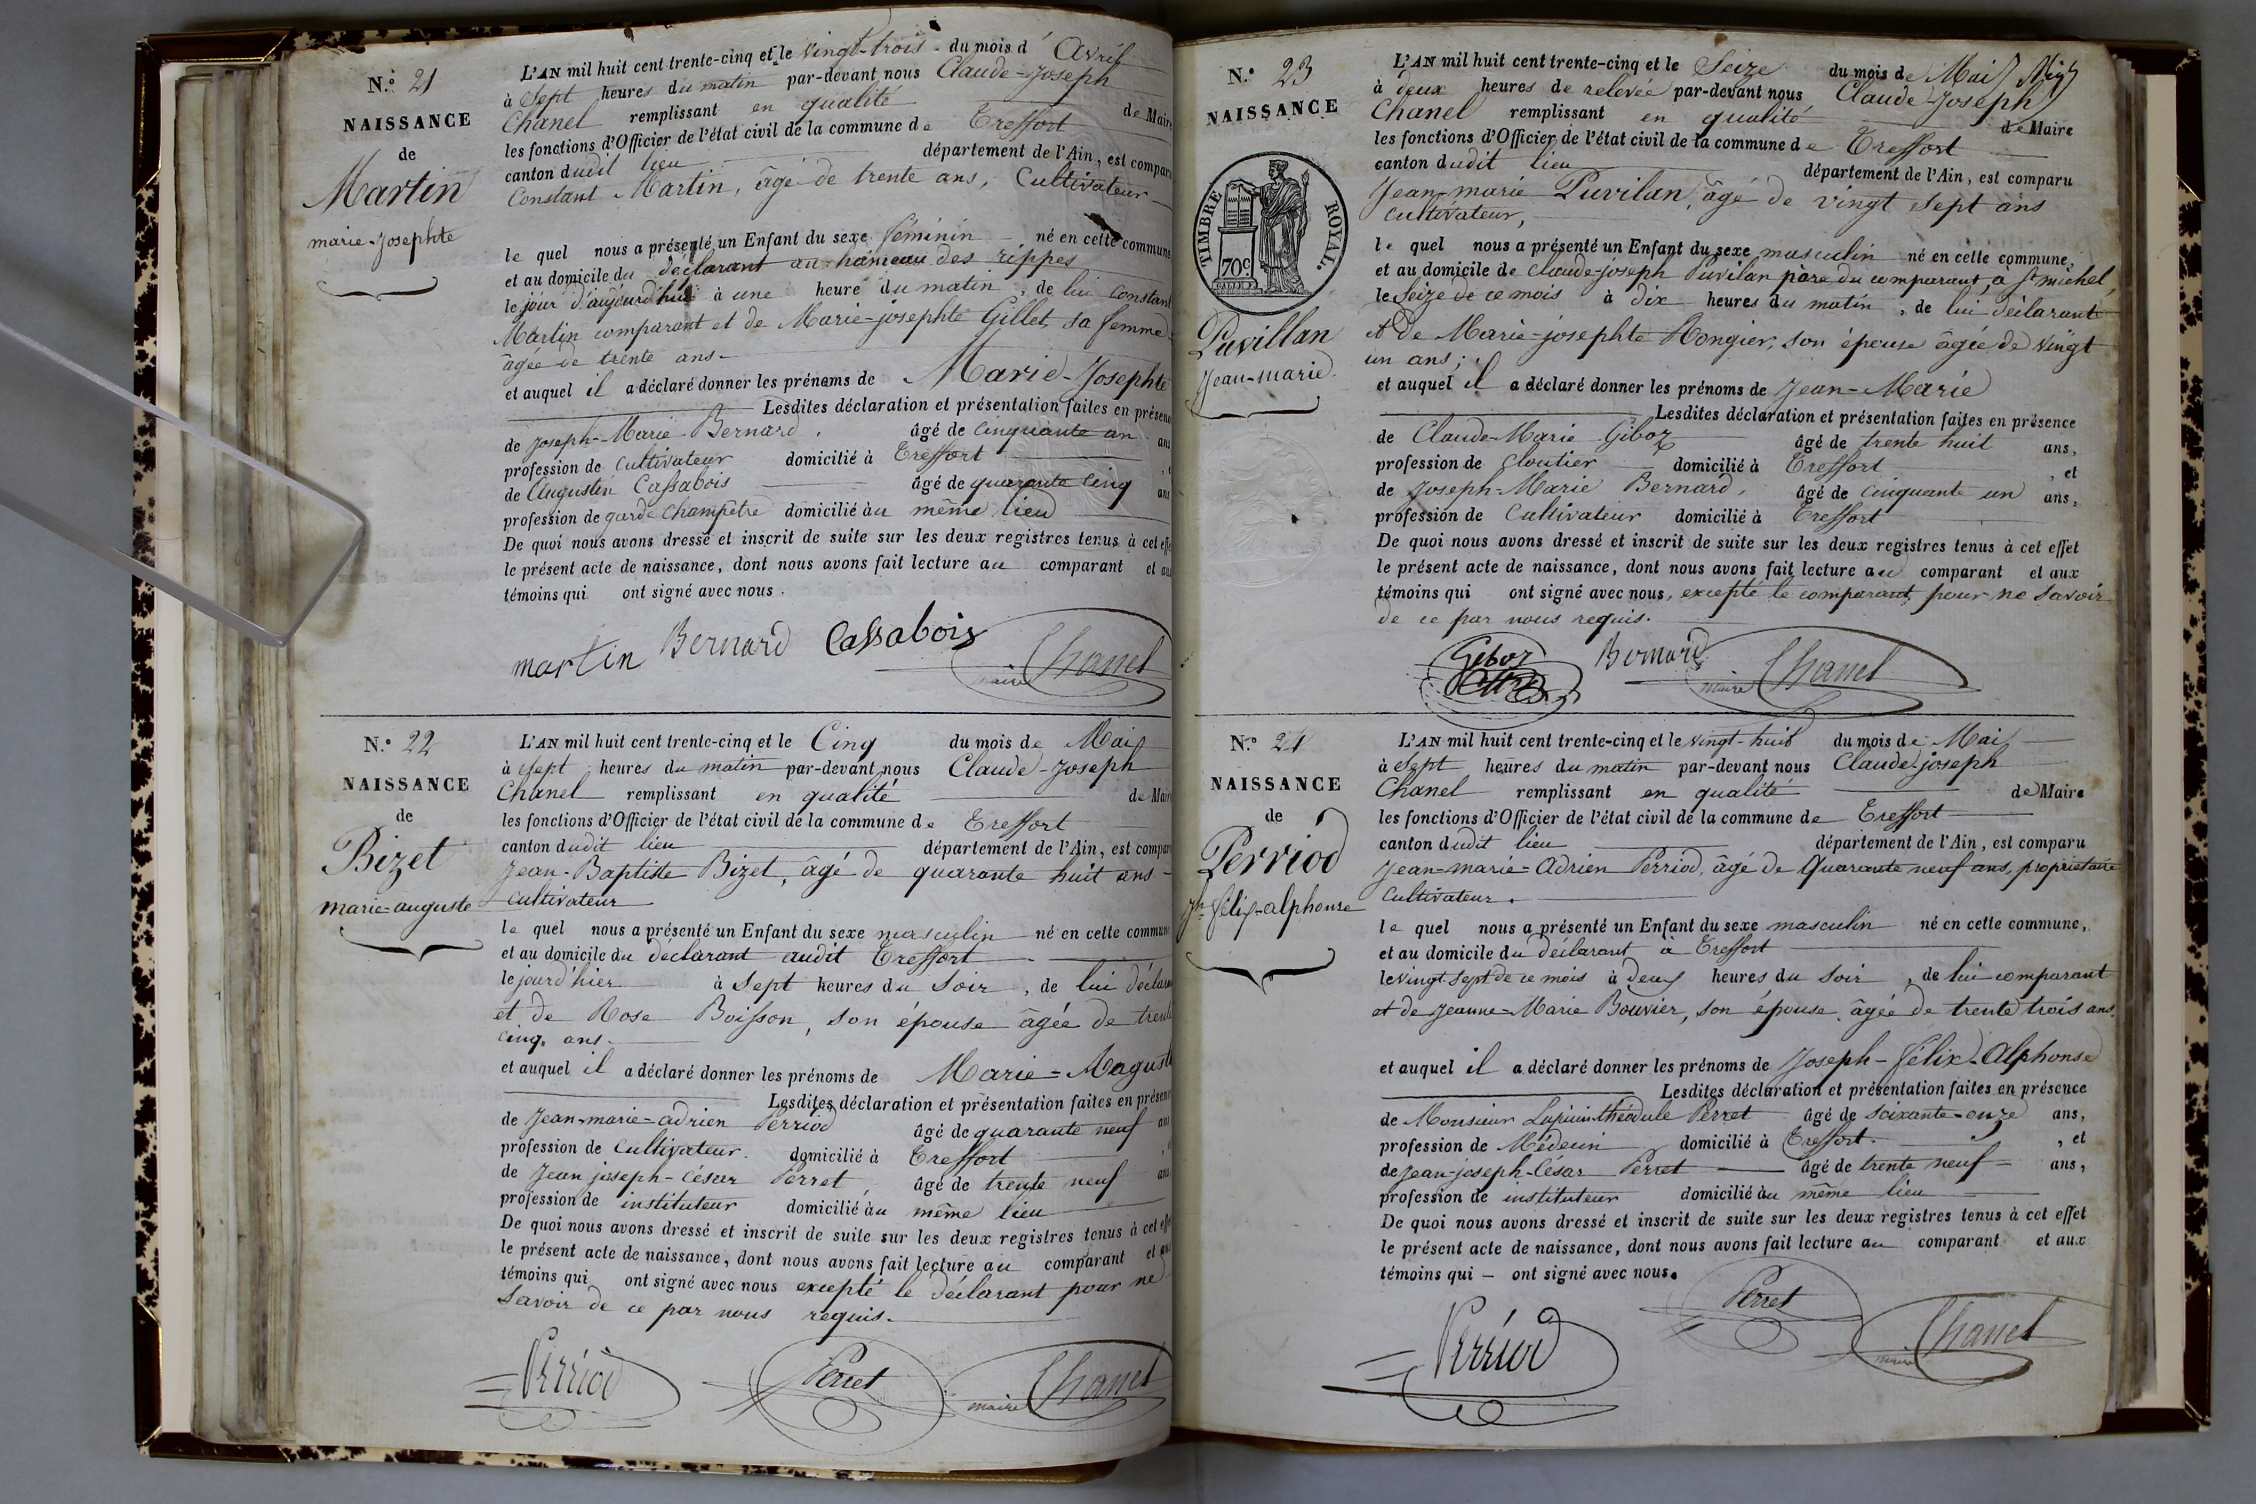 N.º 21
NAISSANCE
de
Martin
marie-Josephte
L'AN mil huit cent trente-cinq et le vingt-trois du mois d'Avril
à Sept heures du matin par-devant nous Claude-Joseph
Chanel remplissant en qualité de Maire
les fonctions d'Officier de l'état civil de la commune de Treffort
canton dudit lieu département de l'Ain, est comparu
Constant Martin, âgé de trente ans, Cultivateur
le quel nous a présenté un Enfant du sexe féminin né en cette commune
et au domicile du déclarant au hameau des rippes
le jour d'aujourd'hui à une heure du matin, de lui Constant
Martin comparant et de Marie-josephte Gillet, sa femme
âgée de trente ans
et auquel il a déclaré donner les prénoms de Marie-Josephte
Lesdites déclaration et présentation faites en présence
de Joseph-Marie Bernard, âgé de cinquante un ans
profession de cultivateur domicilié à Treffort
de Augustin Cassabois âgé de quarante cinq ans
profession de garde champêtre domicilié au même lieu
De quoi nous avons dressé et inscrit de suite sur les deux registres tenus à cet effet
le présent acte de naissance, dont nous avons fait lecture au comparant et aux
témoins qui ont signé avec nous.
martin Bernard Cassabois
maire Chanel
N.º 22
NAISSANCE
de
Bizet
marie-auguste
L'AN mil huit cent trente-cinq et le Cinq du mois de Mai
à Sept heures du matin par-devant nous Claude-Joseph
Chanel remplissant en qualité de Maire
les fonctions d'Officier de l'état civil de la commune de Treffort
canton dudit lieu département de l'Ain, est comparu
Jean-Baptiste Bizet, âgé de quarante huit ans
cultivateur
le quel nous a présenté un Enfant du sexe masculin né en cette commune
et au domicile du déclarant audit Treffort
le jour d'hier à sept heures du soir, de lui déclarant
et de Rose Boisson, son épouse âgée de trente
cinq ans
et auquel il a déclaré donner les prénoms de Marie-Auguste
Lesdites déclaration et présentation faites en présence
de Jean-marie-adrien Perriod âgé de quarante neuf ans
profession de cultivateur. domicilié à Treffort
de Jean joseph-César Perret âgé de trente neuf ans
profession de instituteur domicilié au même lieu
De quoi nous avons dressé et inscrit de suite sur les deux registres tenus à cet effet
le présent acte de naissance, dont nous avons fait lecture au comparant et aux
témoins qui ont signé avec nous excepté le déclarant pour ne
savoir de ce par nous requis.
Perriod Perret maire Chanel
N.º 23
NAISSANCE
TIMBRE ROYAL.
70c
Puvillan
Jean-marie
L'AN mil huit cent trente-cinq et le Seize du mois de Mai
à deux heures de relevée par-devant nous Claude-Joseph
Chanel remplissant en qualité de Maire
les fonctions d'Officier de l'état civil de la commune de Treffort
canton dudit lieu département de l'Ain, est comparu
Jean-marie Puvilan, âgé de vingt sept ans
cultivateur,
le quel nous a présenté un Enfant du sexe masculin né en cette commune,
et au domicile de claude-joseph Puvilan père du comparant, à St michel,
le Seize de ce mois à dix heures du matin, de lui déclarant
et de Marie-josephte Rongier, son épouse âgée de vingt
un ans;
et auquel il a déclaré donner les prénoms de Jean-Marie
Lesdites déclaration et présentation faites en présence
de Claude-Marie Giboz âgé de trente huit ans,
profession de cloutier domicilié à Treffort, et
de Joseph-Marie Bernard, âgé de cinquante un ans,
profession de Cultivateur domicilié à Treffort
De quoi nous avons dressé et inscrit de suite sur les deux registres tenus à cet effet
le présent acte de naissance, dont nous avons fait lecture au comparant et aux
témoins qui ont signé avec nous, excepté le comparant, pour ne savoir
de ce par nous requis.
Giboz Bernard maire Chanel
N.º 24
NAISSANCE
de
Perriod
Jh félix-alphonse
L'AN mil huit cent trente-cinq et le vingt-huit du mois de Mai
à Sept heures du matin par-devant nous Claude-joseph
Chanel remplissant en qualité de Maire
les fonctions d'Officier de l'état civil de la commune de Treffort
canton dudit lieu département de l'Ain, est comparu
Jean-marie-Adrien Perriod, âgé de Quarante neuf ans, propriétaire
Cultivateur.
le quel nous a présenté un Enfant du sexe masculin né en cette commune,
et au domicile du déclarant à Treffort
le vingt-sept de ce mois à deux heures du soir, de lui comparant
et de Jeanne-Marie Bouvier, son épouse, âgée de trente trois ans.
et auquel il a déclaré donner les prénoms de Joseph-Félix-Alphonse
Lesdites déclaration et présentation faites en présence
de Monsieur théodule Perret âgé de soixante-onze ans,
profession de Médecin domicilié à Treffort, et
de Jean-joseph-César Perret âgé de trente neuf ans,
profession de instituteur domicilié au même lieu
De quoi nous avons dressé et inscrit de suite sur les deux registres tenus à cet effet
le présent acte de naissance, dont nous avons fait lecture au comparant et aux
témoins qui ont signé avec nous.
Perriod Perret maire Chanel